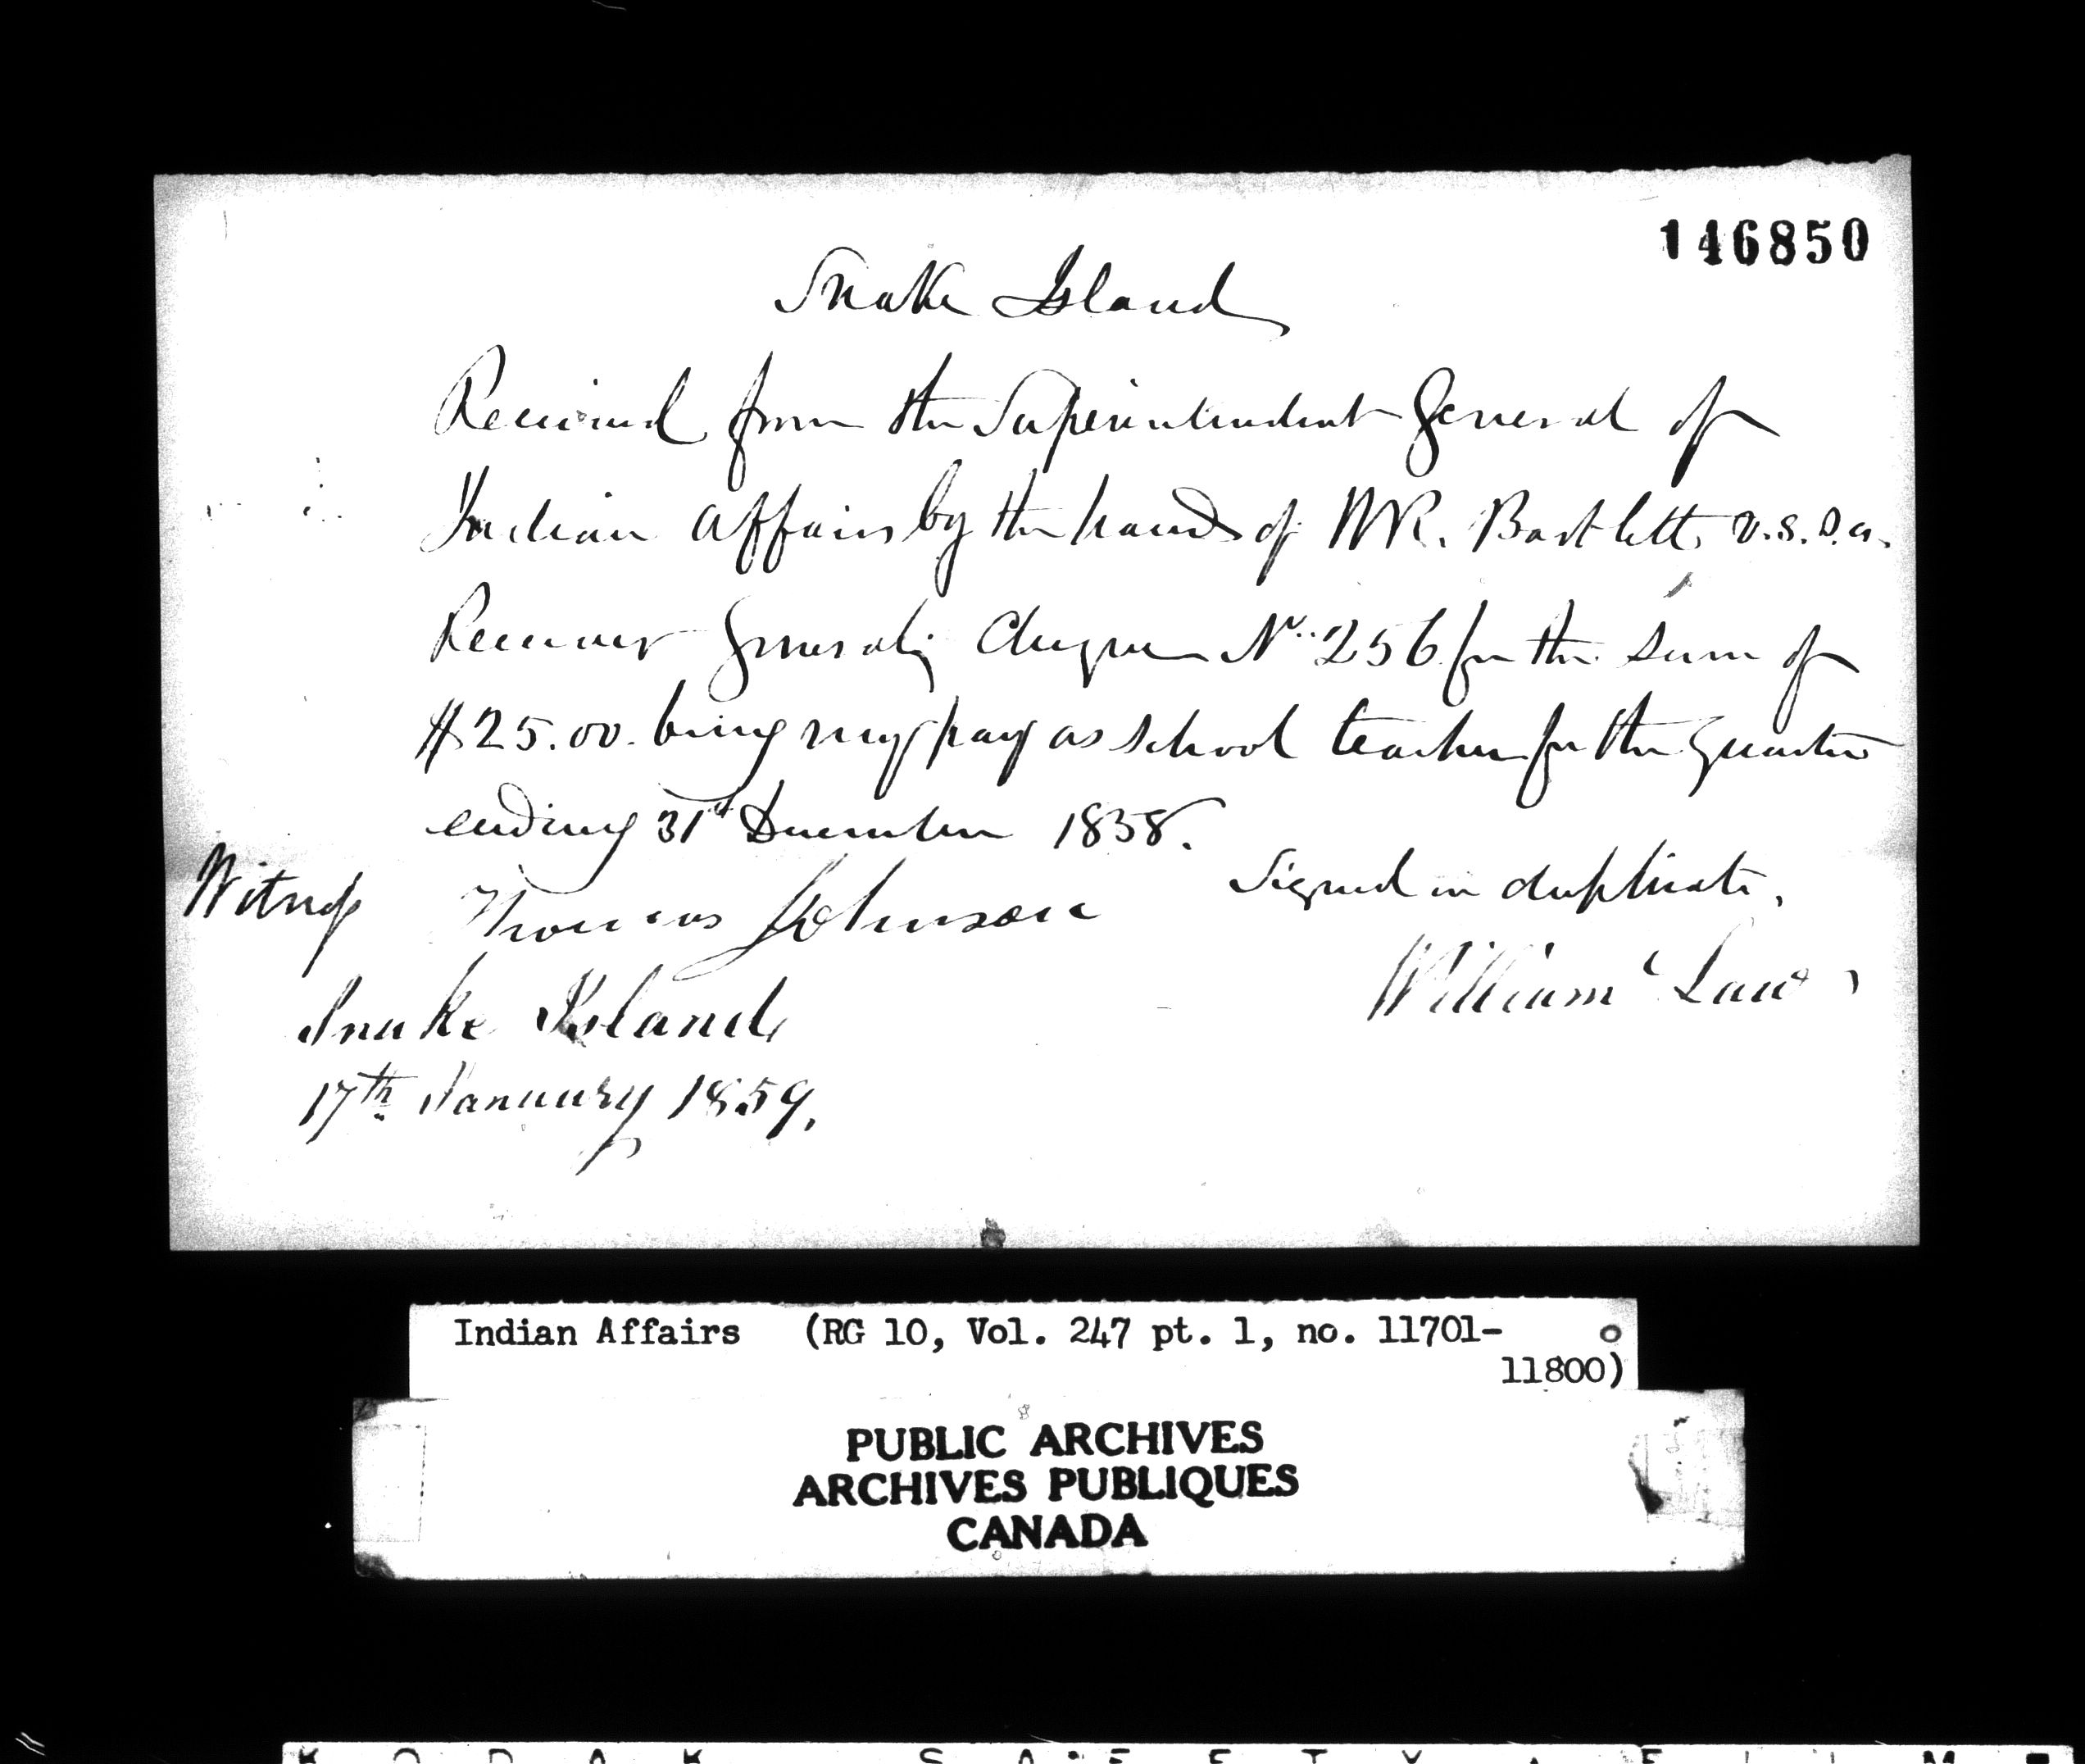 146850
Snake Island
Received from the Superintendent General of
Indian Affairs by the hands of WR. Bartlett, V.S.I.A.
Receiver Generals Cheque No. 256 for the sum of
$25.00. being my pay as school teacher for the Quarter
ending 31st December 1858.
Signed in duplicate,
Witness Thomas Johnson
William Law
Snake Island
17th January 1859,
Indian Affairs (RG 10, Vol. 247 pt. 1, no. 11701-
11800)
PUBLIC ARCHIVES
ARCHIVES PUBLIQUES
CANADA
KODAK SAFETY A FILM